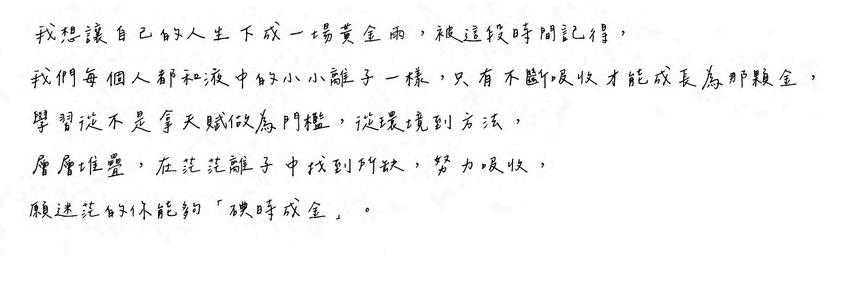 我想讓自己的人生下成一場黃金雨，被這段時間記得，
我們每個人都和液中的小小離子一樣，只有不斷吸收才能成長為那顆金，
學習從不是拿天賦做為門檻，從環境到方法，
層層堆疊，在茫茫離子中找到所缺，努力吸收，
願迷茫的你能夠「碘時成金」。